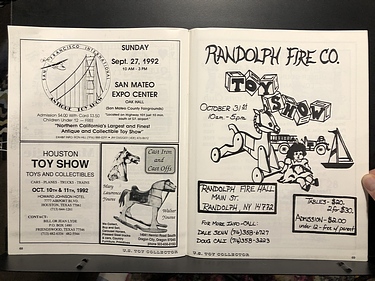 SAN FRANCISCO INTERNATIONAL
ANTIQUE TOY SHOW
Admission $4.00 With Card $3.50
Children Under 12 - FREE
"Northern California's Largest and Finest
Antique and Collectible Toy Show"
SUNDAY
Sept. 27, 1992
10 AM - 3 PM
SAN MATEO
EXPO CENTER
OAK HALL
(San Mateo County Fairgrounds)
HOUSTON
TOY SHOW
TOYS AND COLLECTIBLES
CARS - PLANES - TRUCKS - TRAINS
OCT. 10TH & 11TH, 1992
HOWARD JOHNSON HOTEL
7777 AIRPORT BLVD.
HOUSTON, TEXAS
CONTACT:
BILL OR JEAN LYDE
P.O. BOX 1486
FRIENDSWOOD, TEXAS
Cast Iron and
Cast Offs
Mary
Lawrence
Youree
Walter
Youree
Buy and Sell
U.S. TOY COLLECTOR
RANDOLPH FIRE CO.
TOY
SHOW
OCTOBER 31st
10am - 5pm
RANDOLPH FIRE HALL
MAIN ST.
RANDOLPH, NY 14772
FOR MORE INFO - CALL:
DALE SENN (716) 358-6727
DOUG CALE (716) 358-3223
TABLES - $20.
2 for $30.
ADMISSION - $2.00
under 12 - free w/ parent
U.S. TOY COLLECTOR